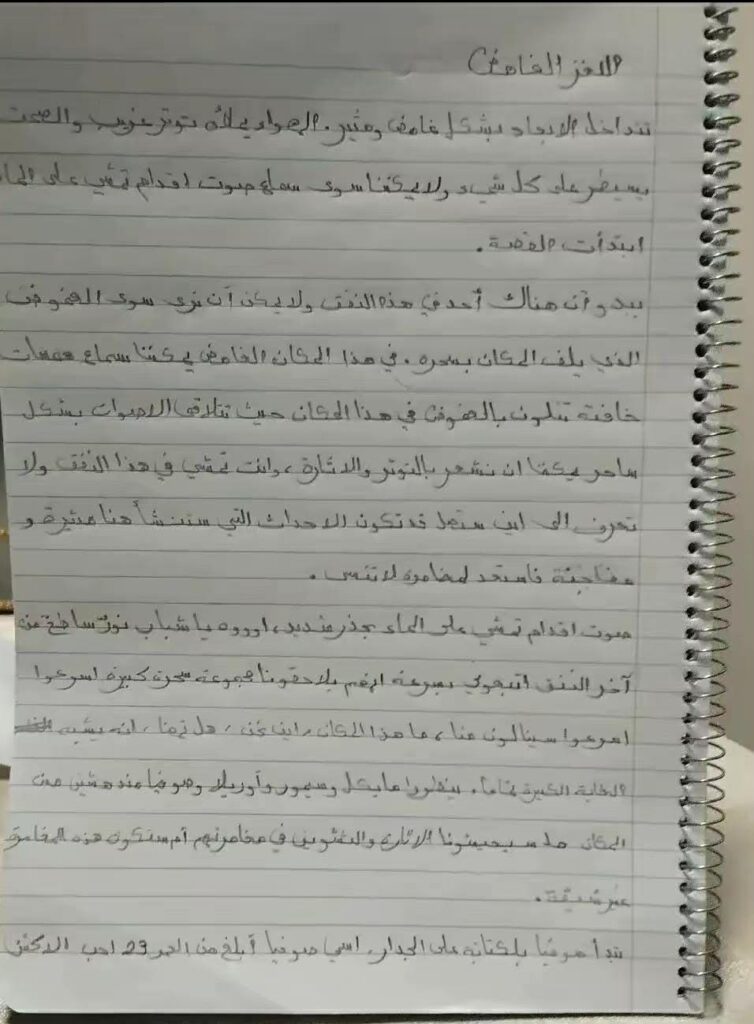 الافز الغامض
تتداخل الابعاد بشكل غامض ومثير. الهواء يملأه توتر غريب والصمت
يسيطر على كل شيء ولا يمكننا سوى سماع صوت اقدام تمشي على الماء
ابتدأت القصة.
يبدو أن هناك أحد في هذه النفق ولا يمكن أن نرى سوى الغموض
الذي يلف المكان بسحره. في هذا المكان الغامض يمكننا سماع همسات
خافتة تتلون بالغموض في هذا المكان حيث تتلاقى الاصوات بشكل
ساحر يمكننا ان نشعر بالتوتر والاثارة، وانت تمشي في هذا النفق ولا
تعرف الى اين ستصل قد تكون الاحداث التي ستنشأ هنا مثيرة و
مفاجئة فاستعد لمغامرة لا تنسى.
صوت اقدام تمشي على الماء بحذر شديد، اوووه يا شباب نورٌ ساطع من
آخر النفق اتبعوني بسرعة انهم يلاحقونا مجموعة سحرة كبيرة اسرعوا
اسرعوا سينالون منا، ما هذا المكان، اين نحن، هل تهنا، انه يشبه
الغابة الكبيرة تماماً. ينظورا مايكل وسيمور وأوريلا وصوفيا مندهشين من
المكان هل سيعيشونا الاثارة والتشويق في مغامرتهم أم ستكون هذه المغامرة
غير شيقة.
تبدأ صوفيا بلكتابة على الجدار، اسمي صوفيا أبلغ من العمر 23 احب الاكشن